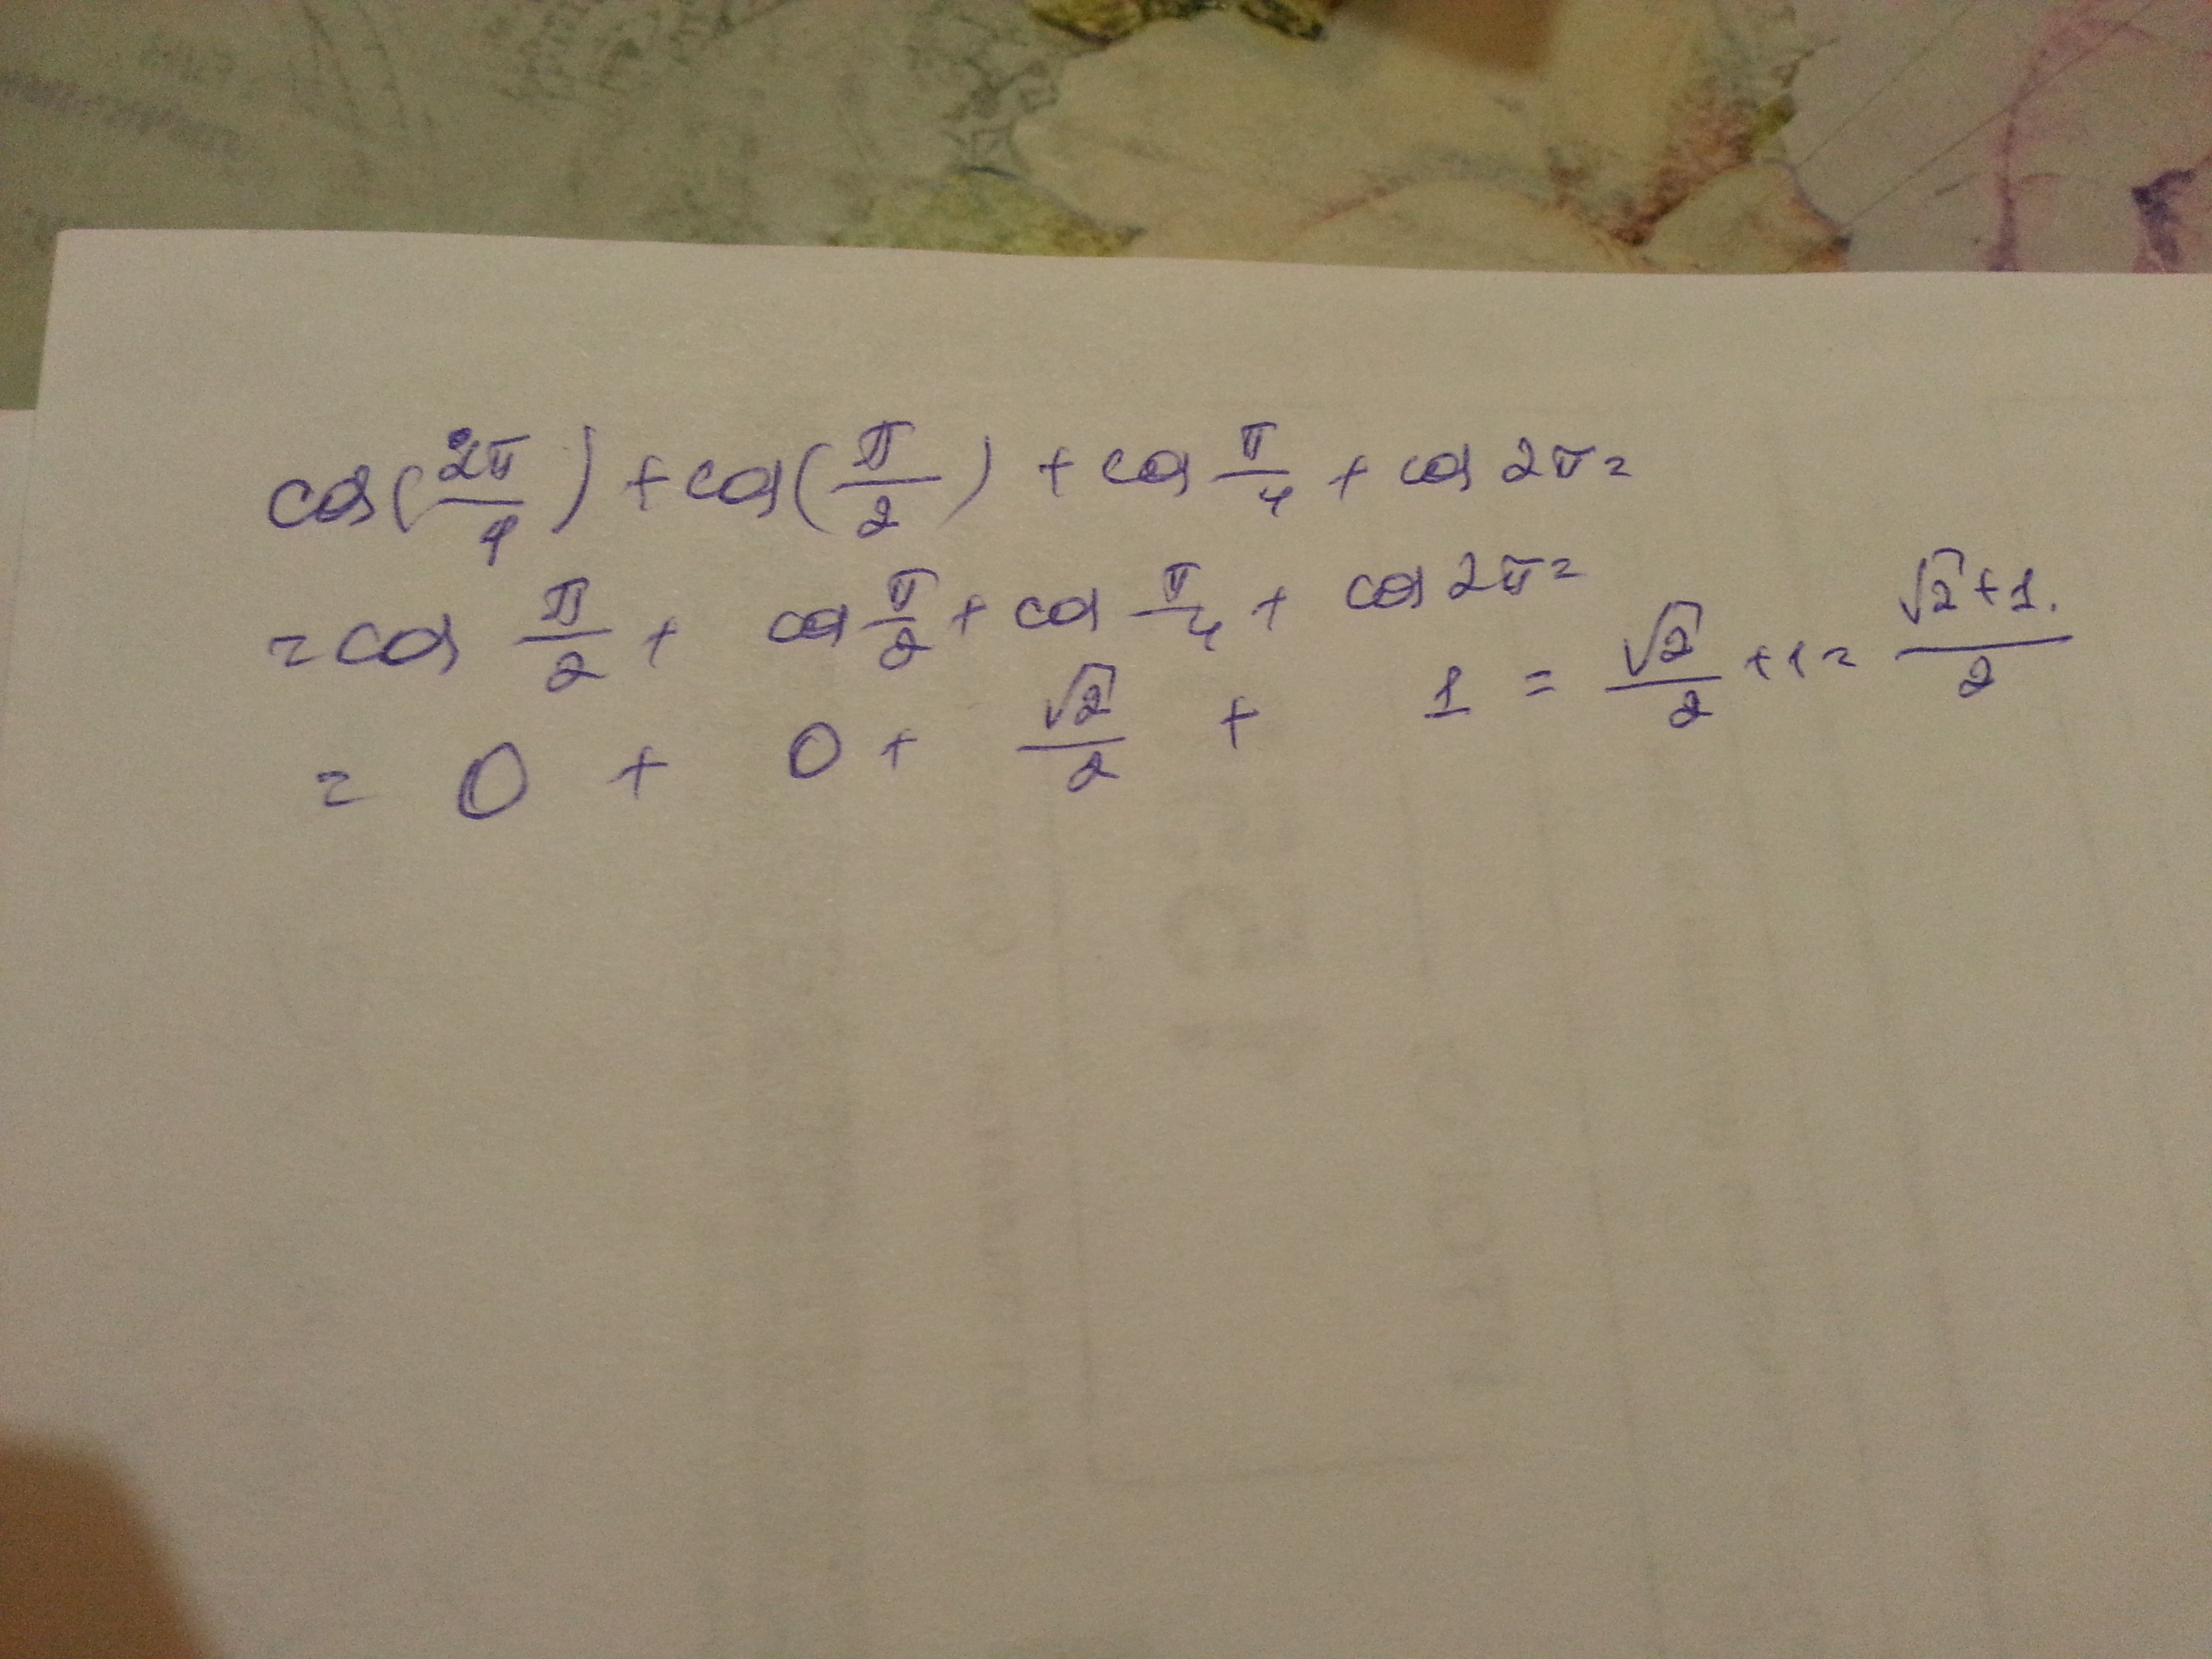 cos(2π/4) + cos(π/2) + cos π/4 + cos 2π =
= cos π/2 + cos π/2 + cos π/4 + cos 2π =
= 0 + 0 + √2/2 + 1 = √2/2 + 1 = √2+1./2